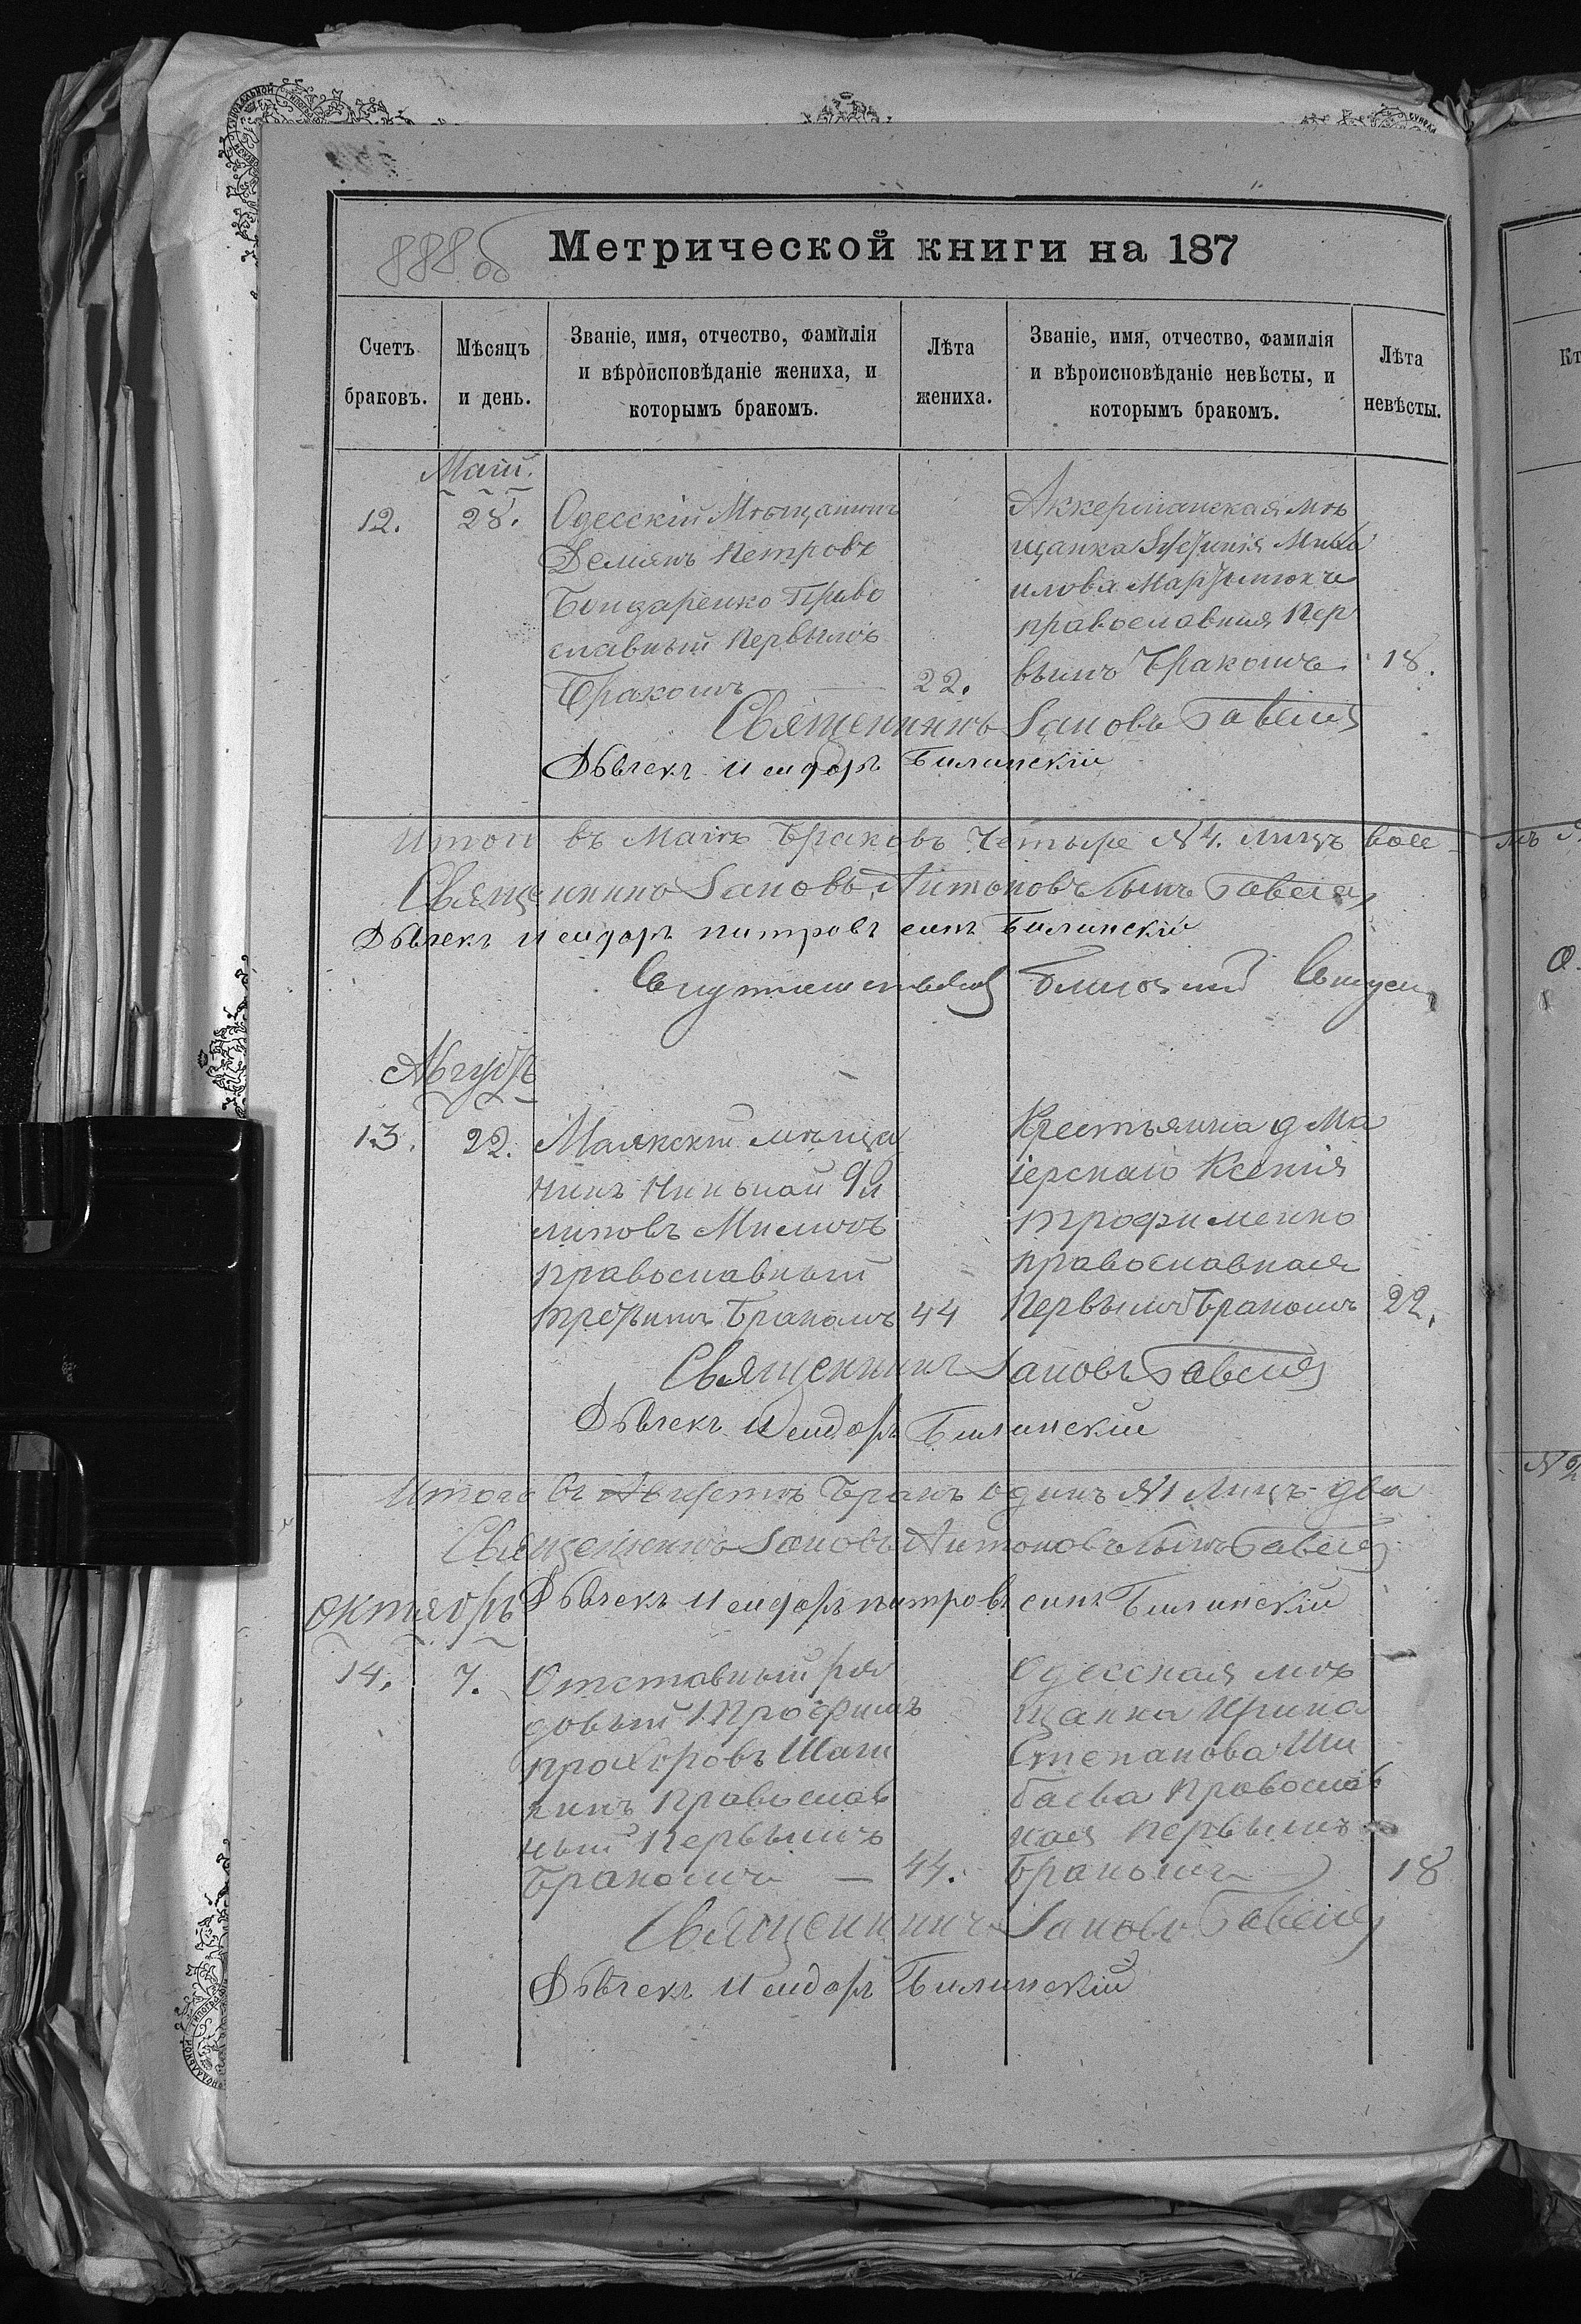 888 об
Метрической книги на 187
Счетъ браковъ.
Мѣсяцъ и день.
Званіе, имя, отчество, фамилія
и вѣроисповѣданіе жениха, и
которымъ бракомъ.
Лѣта жениха.
Званіе, имя, отчество, фамилія
и вѣроисповѣданіе невѣсты, и
которымъ бракомъ.
Лѣта невѣсты.
Маій.
12. 28.
Одесскій Мѣщанинъ
Демянъ Петровъ
Бондаренко Право
славный Первымъ
Бракомъ 22.
Аккерманская мѣ
щанка Миха
илова
православная Пер
вымъ Бракомъ 18.
Священникъ Іаковъ Гавели
Дьячекъ Исидоръ Билинскій
Итого въ Маіѣ Браковъ Четыре №4. лицъ восе
Священникъ Іаковъ Антоновъ Сынъ Гавели
Дьячекъ Исидоръ питровъ синъ Билинскій
Августъ
13. 22.
Маякскій мѣща
нинъ Никонай Фи
липовъ
православный
третимъ Бракомъ 44
Крестьянка д Ма
іерскаго Ксенія
трофименко
православная
Первымъ Бракомъ 22.
Священникъ Іаковъ Гавели
Дьячекъ Исидоръ Билинскій
Итого въ Августѣ Бракъ одинъ №1 Лицъ два
Священникъ Іаковъ Антоновъ Сынъ Гавели
Дьячекъ Исидоръ питровъ синъ Билинскій
октябрь
14. 7.
Отставный ря
довый Трофимъ
прохоровъ Шаги
нинъ Православ
ный Первымъ
Бракомъ — 44.
Одесская мѣ
щанка Ирина
Степанова Ши
баева Православ
ная первымъ
Бракомъ 18
Священникъ Іаковъ Гавели
Дьячекъ Исидоръ Билинскій